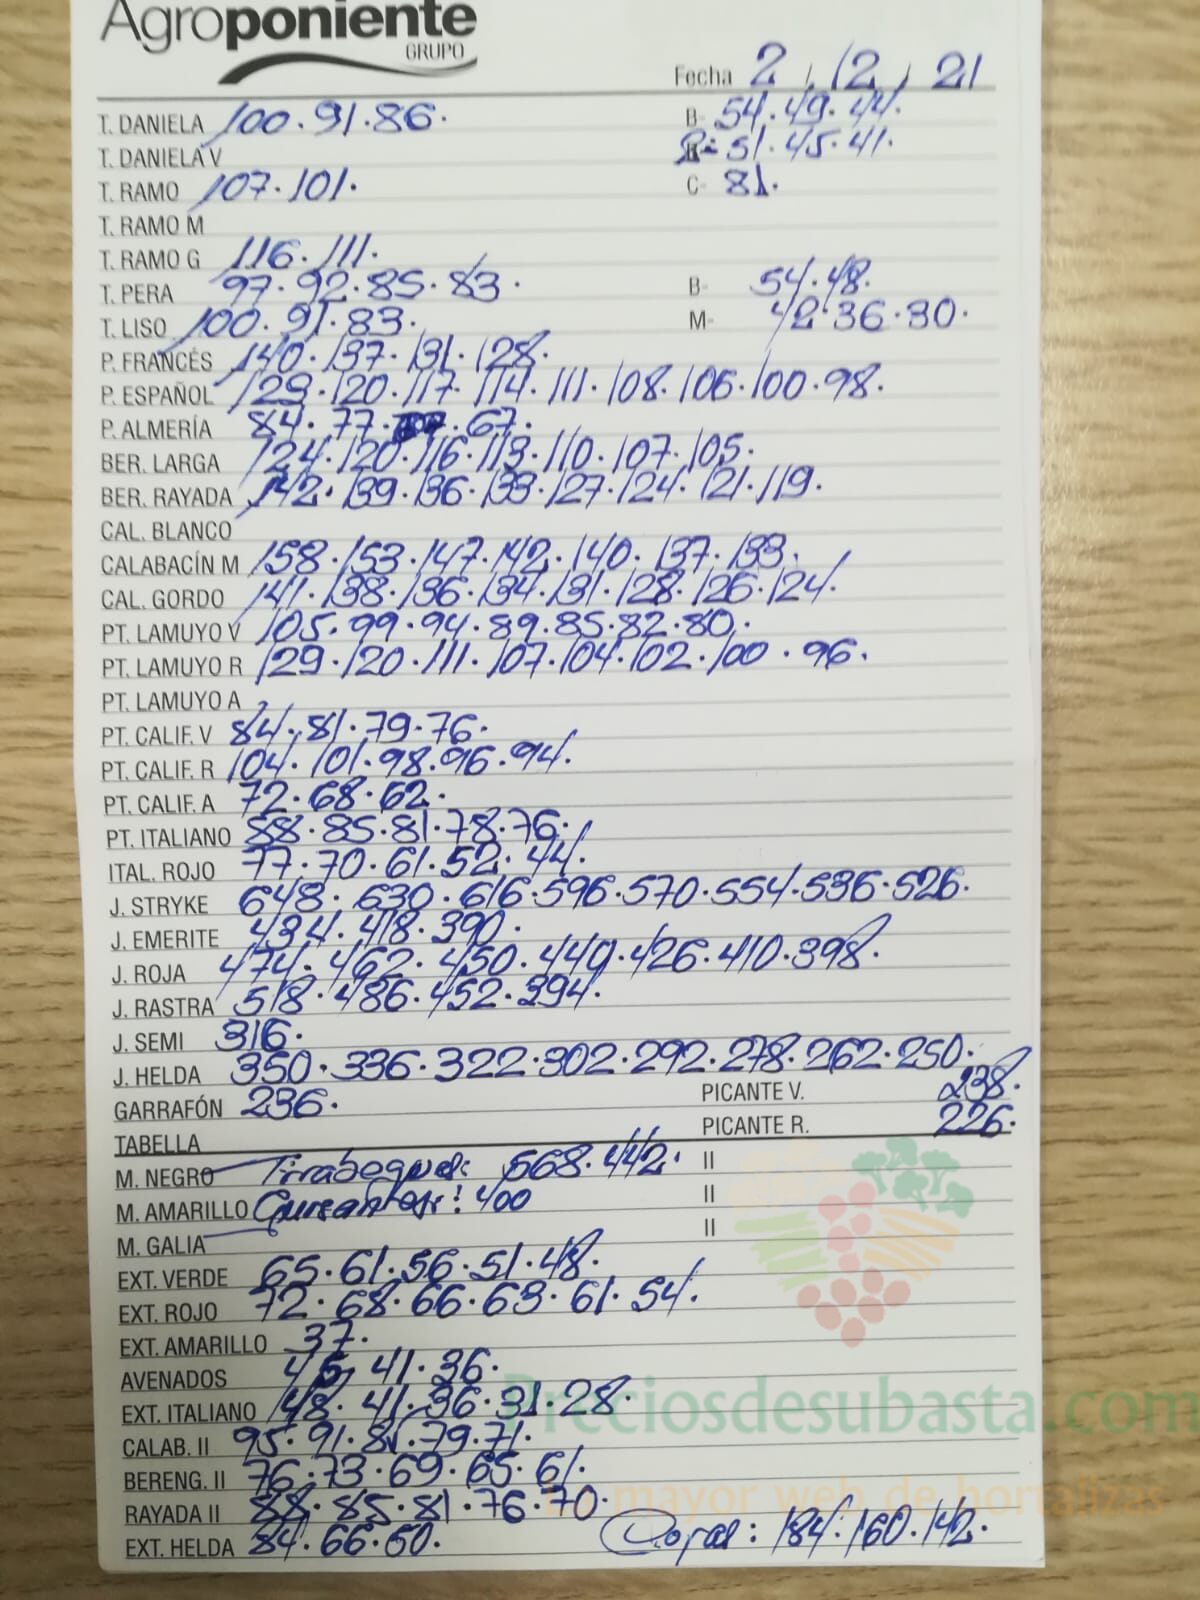 Agroponiente
GRUPO
Fecha 2 / 12 / 21
T. DANIELA 100. 91. 86. B- 54. 49. 44.
T. DANIELA V R- 51. 45. 41.
T. RAMO 107. 101. C- 81.
T. RAMO M
T. RAMO G 116. 111.
T. PERA 97. 92. 85. 83. B- 54. 48.
T. LISO 100. 91. 83. M- 42. 36. 30.
P. FRANCÉS 140. 137. 131. 128.
P. ESPAÑOL 129. 120. 117. 114. 111. 108. 106. 100. 98.
P. ALMERÍA 84. 77. 67.
BER. LARGA 124. 120. 116. 113. 110. 107. 105.
BER. RAYADA 142. 139. 136. 133. 127. 124. 121. 119.
CAL. BLANCO
CALABACÍN M 158. 153. 147. 142. 140. 137. 133.
CAL. GORDO 141. 138. 136. 134. 131. 128. 126. 124.
PT. LAMUYO V 105. 99. 94. 89. 85. 82. 80.
PT. LAMUYO R 129. 120. 111. 107. 104. 102. 100. 96.
PT. LAMUYO A
PT. CALIF. V 84. 81. 79. 76.
PT. CALIF. R 104. 101. 98. 96. 94.
PT. CALIF. A 72. 68. 62.
PT. ITALIANO 88. 85. 81. 78. 76.
ITAL. ROJO 77. 70. 61. 52. 44.
J. STRYKE 648. 630. 616. 596. 570. 554. 536. 526.
J. EMERITE 434. 418. 390.
J. ROJA 474. 462. 450. 440. 426. 410. 398.
J. RASTRA 518. 486. 452. 394.
J. SEMI 316.
J. HELDA 350. 336. 322. 302. 292. 278. 262. 250.
GARRAFÓN 236. PICANTE V. 238.
TABELLA PICANTE R. 226.
M. NEGRO Tirabeques: 568. 442. II
M. AMARILLO 400 II
M. GALIA II
EXT. VERDE 65. 61. 56. 51. 48.
EXT. ROJO 72. 68. 66. 63. 61. 54.
EXT. AMARILLO 37.
AVENADOS 45. 41. 36.
EXT. ITALIANO 48. 41. 36. 31. 28.
Preciosdesubasta.com
CALAB. II 95. 91. 85. 79. 71.
BERENG. II 76. 73. 69. 65. 61.
La mayor web de hortalizas
RAYADA II 88. 85. 81. 76. 70.
EXT. HELDA 84. 66. 50. : 184. 160. 142.